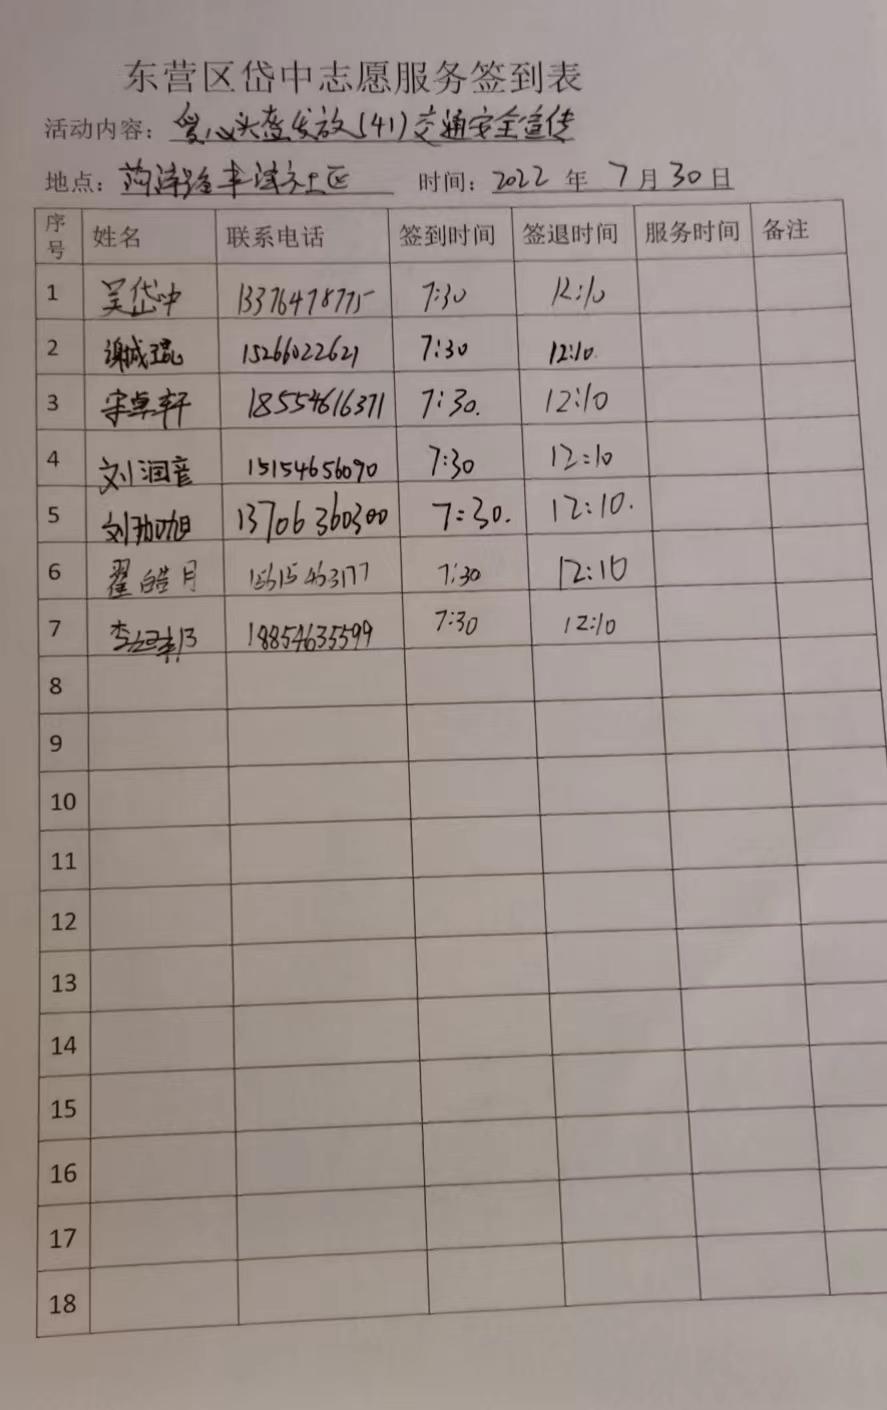 东营区岱中志愿服务签到表
活动内容：爱心头盔发放(41)交通安全宣传
地点： 社区 时间：2022年7月30日
序号 姓名 联系电话 签到时间 签退时间 服务时间 备注
1 吴岱中 13376478775 7:30 12:10
2 谢城琨 15266022621 7:30 12:10.
3 宋卓轩 18554616371 7:30. 12:10
4 刘润彦 15154656090 7:30 12:10
5 刘珈旭 13706360300 7:30. 12:10.
6 翟皓月 7:30 12:10
7 李 18854635599 7:30 12:10
8
9
10
11
12
13
14
15
16
17
18